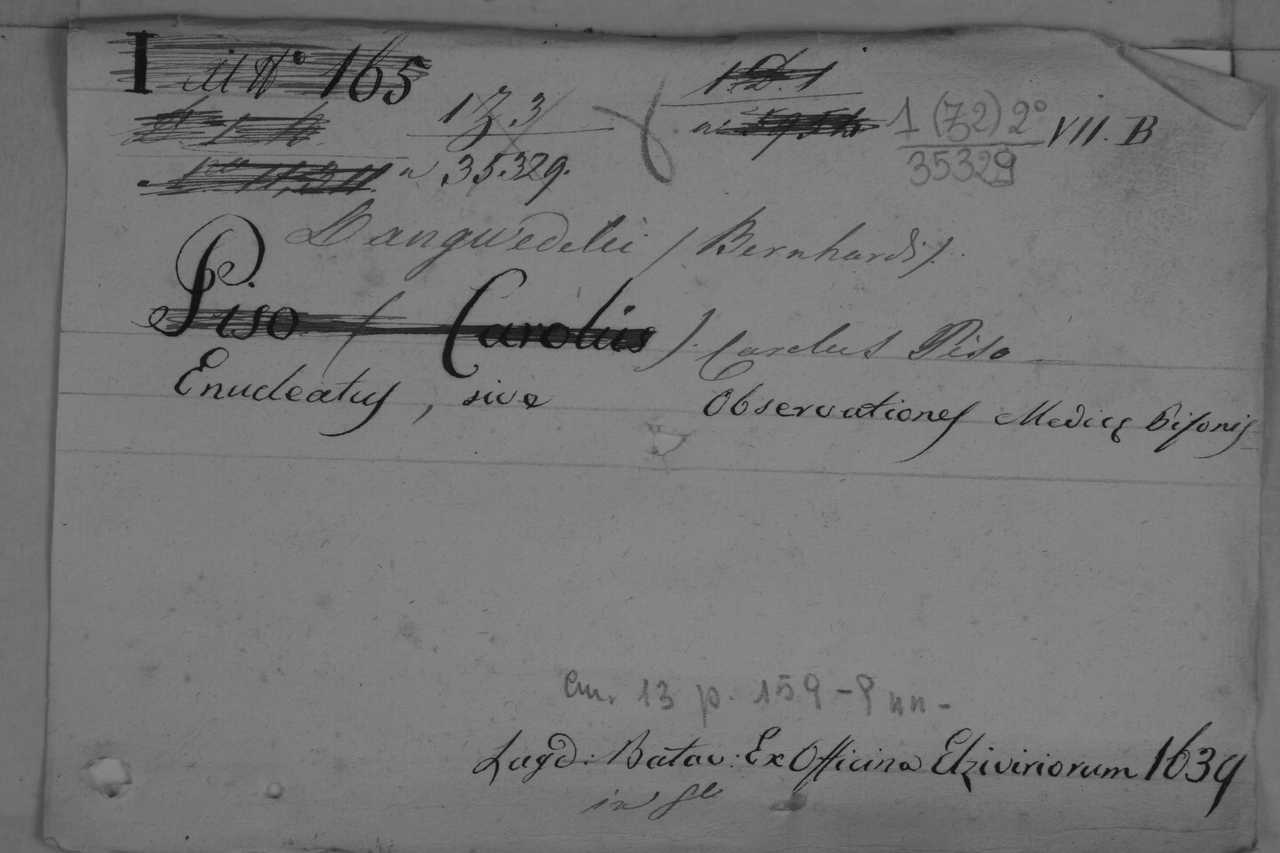 I M N° 165
1 D. 1
1 Z. 3
35.329.
1 (Z2) 2° VII. B
35329
Langwedelii (Bernhardi).
Piso (Carolus). Carolus Piso
Enucleatus, sive Observationes Medicę Pisonis
cm. 13 p. 159 - 9 nn -
Lugd: Batav: Ex Officina Elziviriorum 1639
in 8°